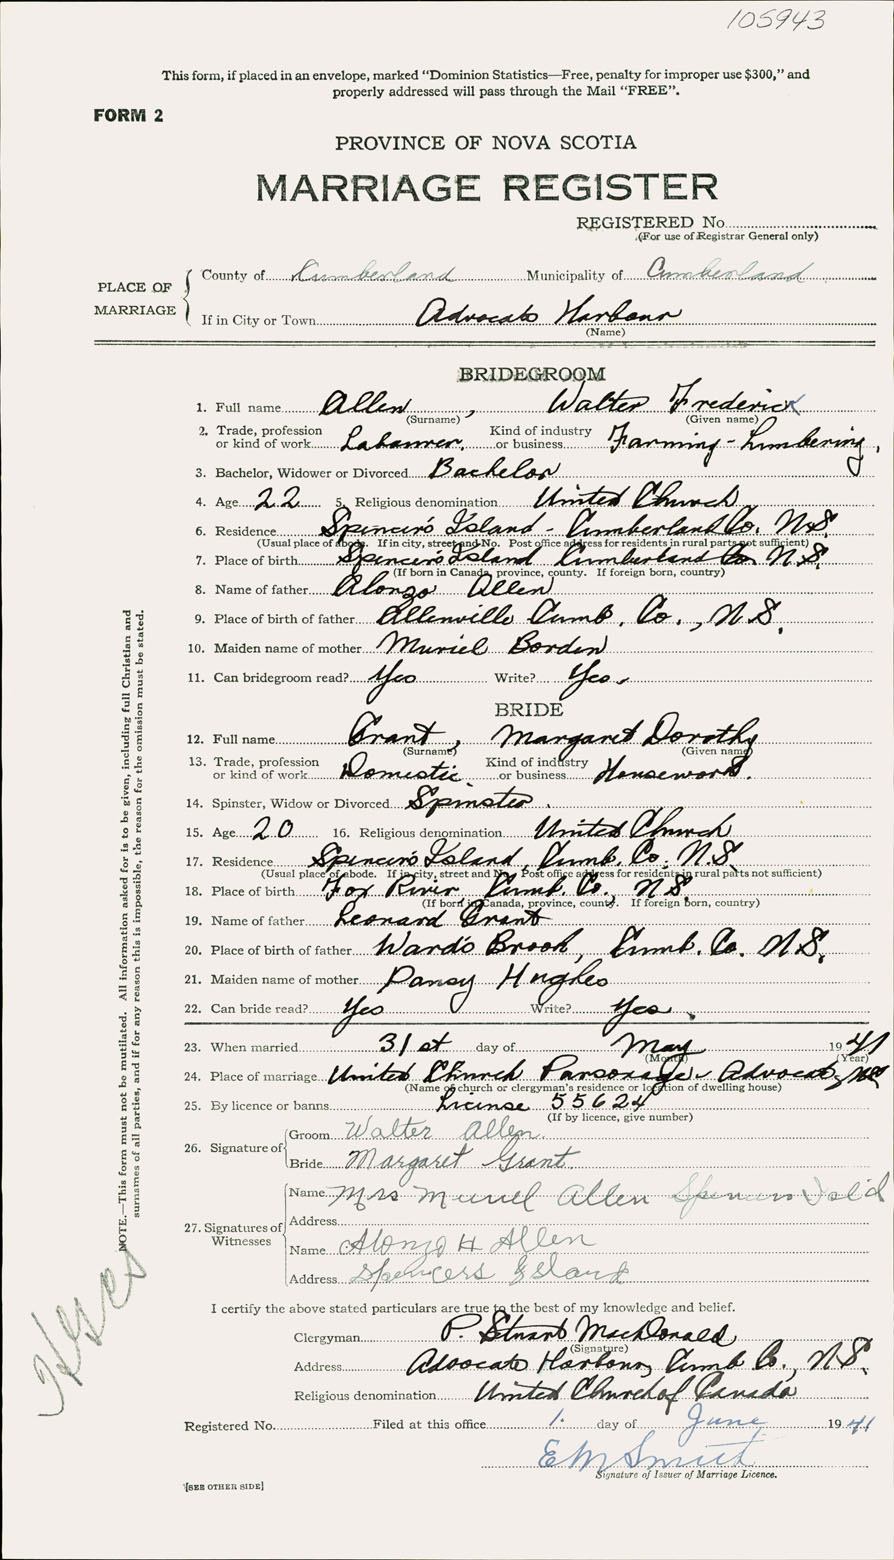 105943
This form, if placed in an envelope, marked “Dominion Statistics—Free, penalty for improper use $300,” and
properly addressed will pass through the Mail “FREE”.
FORM 2
PROVINCE OF NOVA SCOTIA
MARRIAGE REGISTER
REGISTERED No.
(For use of Registrar General only)
PLACE OF MARRIAGE
County of Cumberland Municipality of Cumberland
If in City or Town Advocate Harbour
(Name)
BRIDEGROOM
1. Full name Allen, Walter Frederick
(Surname) (Given name)
2. Trade, profession or kind of work Labourer. Kind of industry or business Farming - Lumbering,
3. Bachelor, Widower or Divorced Bachelor
4. Age 22 5. Religious denomination United Church
6. Residence Spencer's Island - Cumberland Co. N.S.
(Usual place of abode. If in city, street and No. Post office address for residents in rural parts not sufficient)
7. Place of birth Spencer's Island Cumberland Co. N.S.
(If born in Canada, province, county. If foreign born, country)
8. Name of father Alonzo Allen
9. Place of birth of father Allenville Cumb. Co., N.S.
10. Maiden name of mother Muriel Borden
11. Can bridegroom read? Yes Write? Yes.
BRIDE
12. Full name Grant, Margaret Dorothy
(Surname) (Given name)
13. Trade, profession or kind of work Domestic. Kind of industry or business Housework.
14. Spinster, Widow or Divorced Spinster.
15. Age 20 16. Religious denomination United Church
17. Residence Spencer's Island, Cumb. Co. N.S.
(Usual place of abode. If in city, street and No. Post office address for residents in rural parts not sufficient)
18. Place of birth Fox River Cumb. Co., N.S.
(If born in Canada, province, county. If foreign born, country)
19. Name of father Leonard Grant
20. Place of birth of father Ward's Brook, Cumb. Co. N.S.
21. Maiden name of mother Pansy Hughes
22. Can bride read? Yes Write? Yes.
23. When married 31st day of May 1941
(Month) (Year)
24. Place of marriage United Church Parsonage - Advocate, N.S.
(Name of church or clergyman's residence or location of dwelling house)
25. By licence or banns License 55624
(If by licence, give number)
26. Signature of
Groom Walter Allen.
Bride Margaret Grant.
27. Signatures of Witnesses
Name Mrs Muriel Allen Spencers Isld
Address
Name Alonzo H Allen
Address Spencers Island
I certify the above stated particulars are true to the best of my knowledge and belief.
Clergyman P. Stuart MacDonald
(Signature)
Address Advocate Harbour, Cumb Co., N.S.
Religious denomination United Church of Canada
Registered No. Filed at this office 1. day of June 1941
E M Smith
Signature of Issuer of Marriage Licence.
[SEE OTHER SIDE]
NOTE.—This form must not be mutilated. All information asked for is to be given, including full Christian and
surnames of all parties, and if for any reason this is impossible, the reason for the omission must be stated.